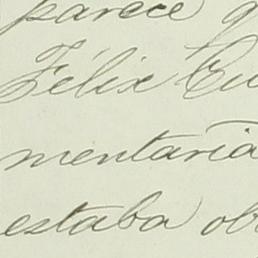 parece
Félix
mentaria
estaba